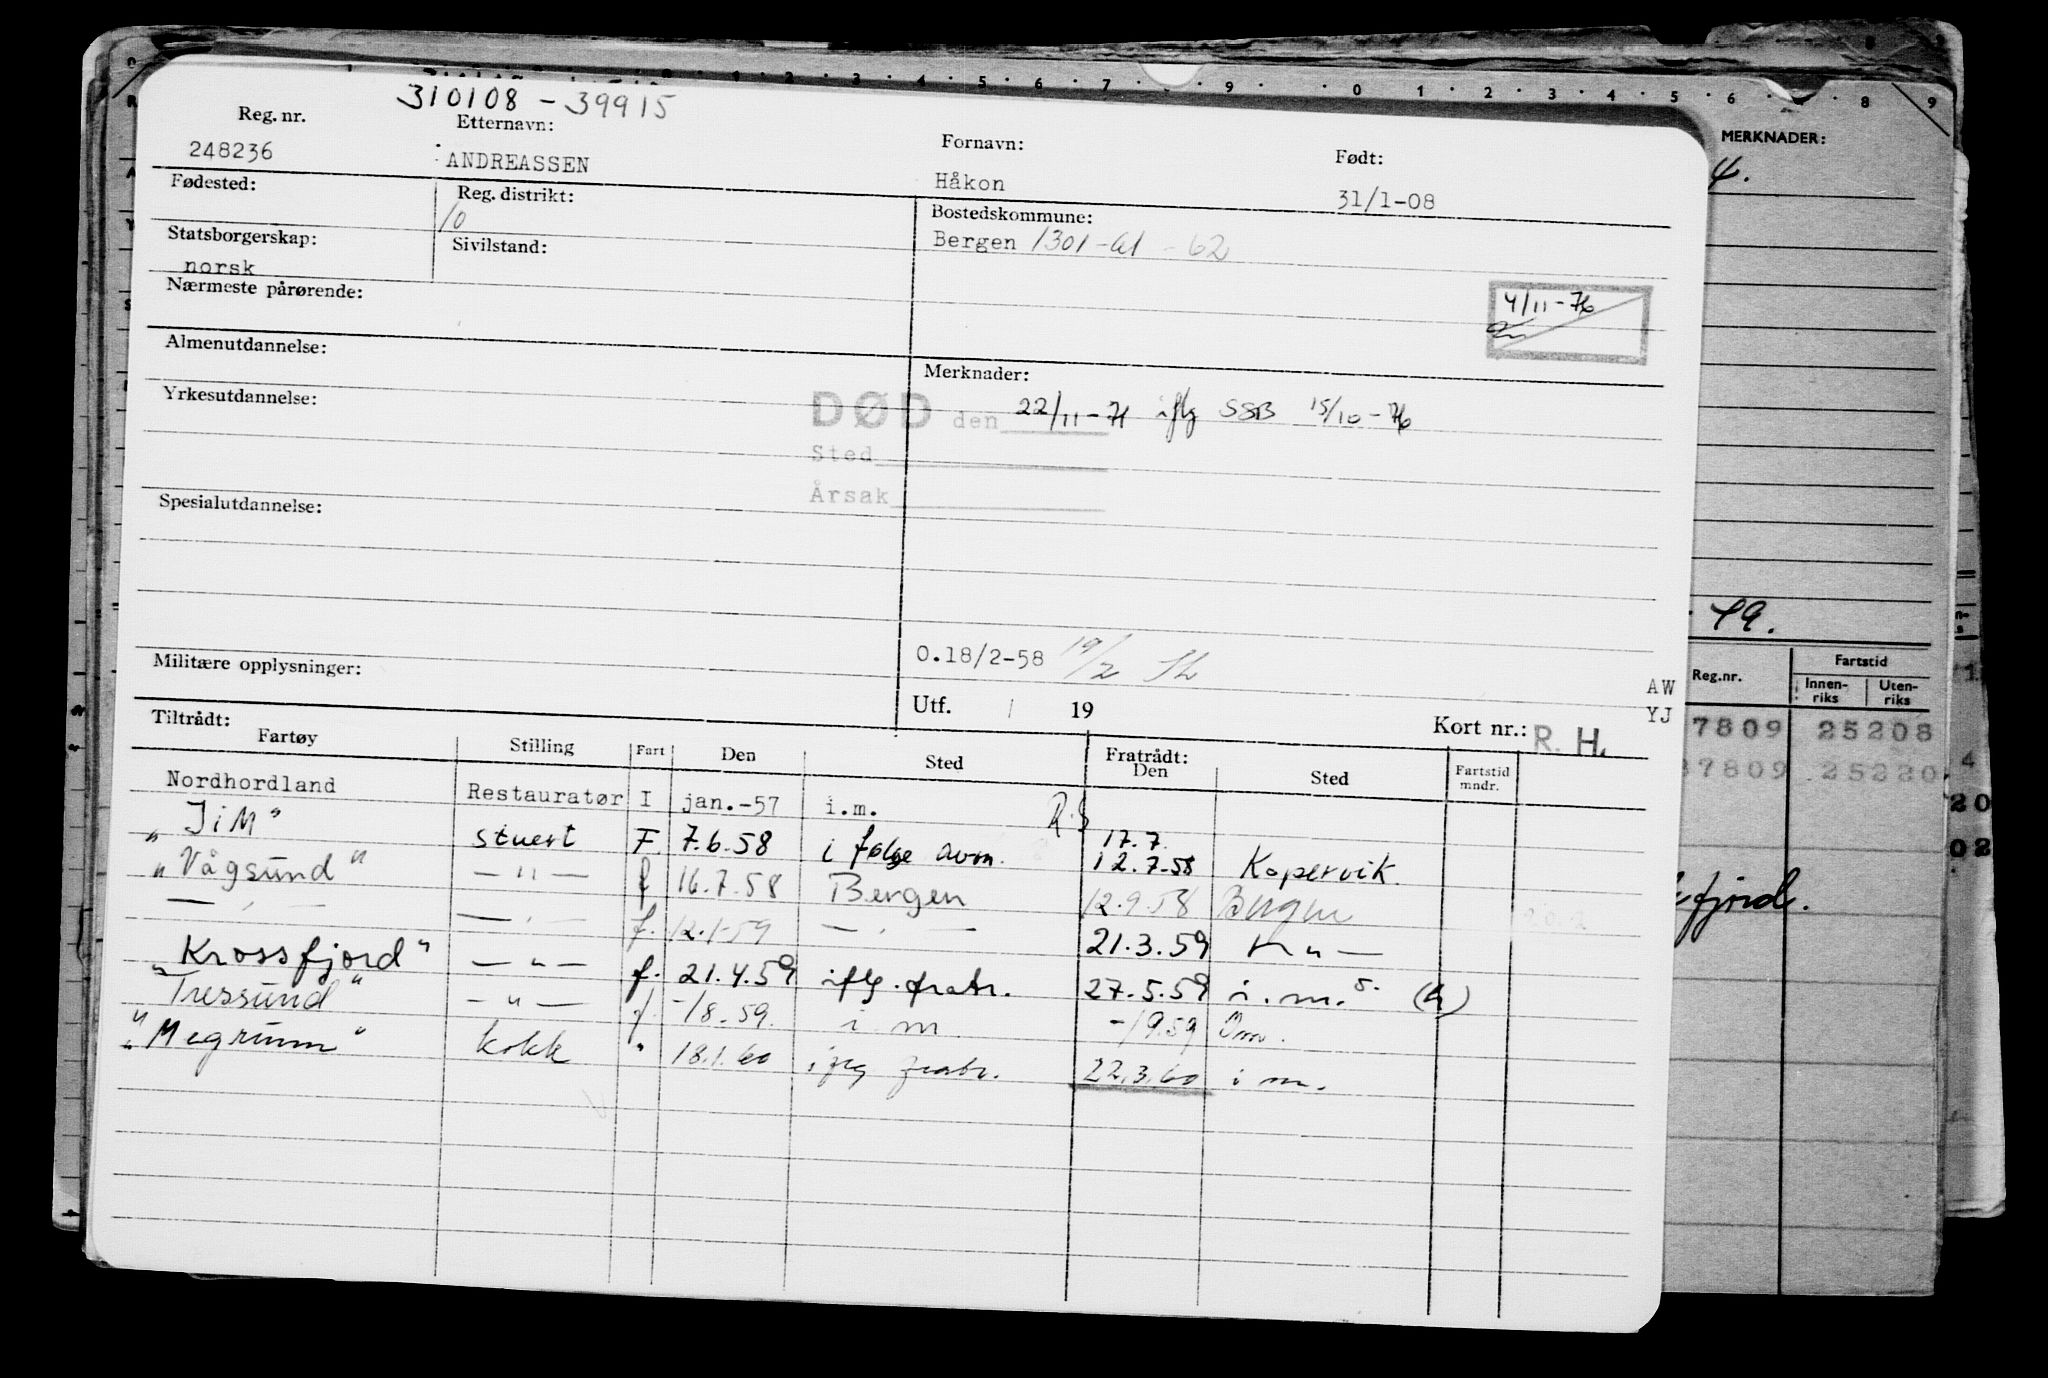 310108 - 39915
Reg. nr. Etternavn: Fornavn: Født:
248236 ANDREASSEN Håkon 31/1-08
Fødested: Reg. distrikt: Bostedskommune:
10 Bergen 1301-61 - 62
Statsborgerskap: Sivilstand:
norsk
Nærmeste pårørende:
4/11-76
Almenutdannelse: Merknader:
Yrkesutdannelse: DØD den 22/11-71 iflg SSB 15/10-76
Sted
Årsak
Spesialutdannelse:
Militære opplysninger: 0.18/2-58 19/2
AW
YJ
Utf. / 19 Kort nr.: R. H.
Tiltrådt: Fratrådt:
Fartøy Stilling Fart Den Sted Den Sted Fartstid mndr.
Nordhordland Restauratør I jan.-57 i.m. R.S
"JiM" stuert F. 7.6.58 i følge avm. 17.7. 12.7-58 Kopervik.
"Vågsund" — " — f 16.7.58 Bergen 12.9.58 Bergen
— " — — " — f. 12.1-59 — " — 21.3.59 — " —
Krossfjord" — " — f. 21.4.59 iflg. fratr. 27.5.59 i.m.s. (h)
"Tressund" — " — f. -/8.59. i m -/9.59 Dm.
"Megrunn" kokk " 18.1.60 iflg fratr. 22.3.60 i m.
MERKNADER:
4.
49.
Reg.nr. Fartstid
Innen-riks Uten-riks
7809 25208
37809 25220
fjord.
4
20
02